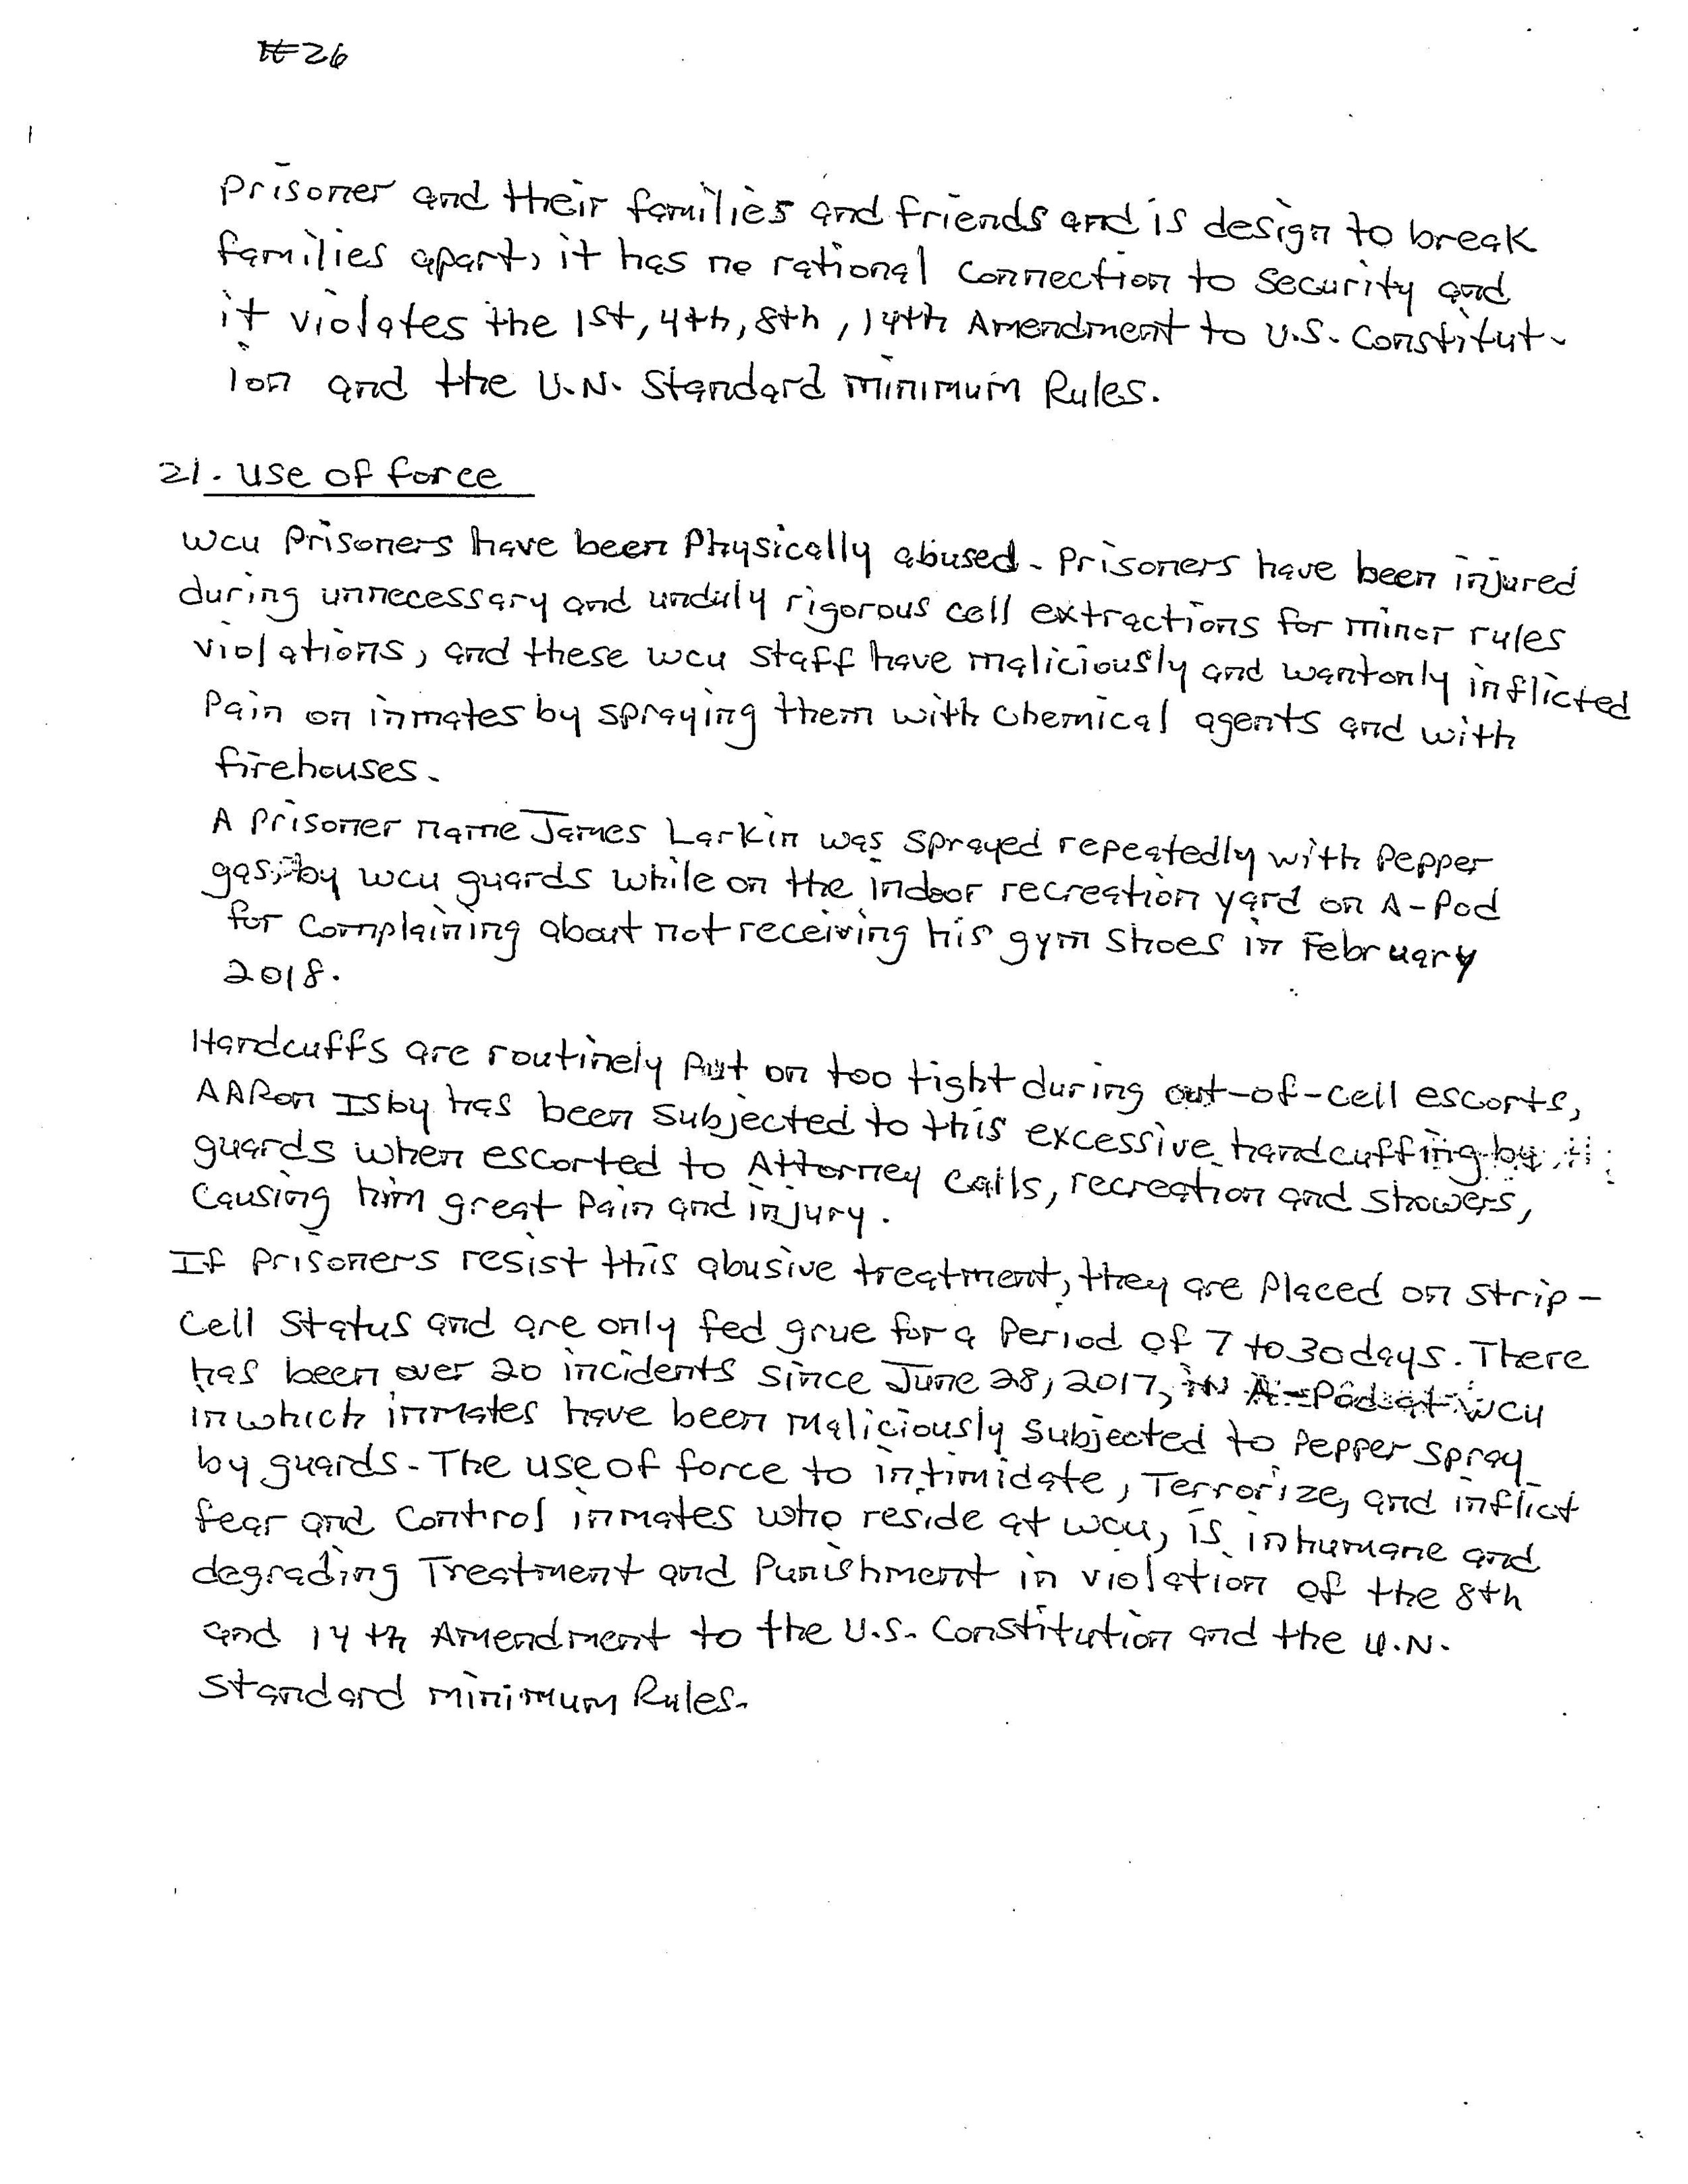 #26
Prisoner and their families and friends and is design to break
families apart, it has no rational connection to security and
it violates the 1st, 4th, 8th, 14th Amendment to U.S. Constitut-
ion and the U.N. Standard minimum Rules.
21. Use of force
WCU Prisoners have been Physically abused. Prisoners have been injured
during unnecessary and unduly rigorous cell extractions for minor rules
violations, and these WCU Staff have maliciously and wantonly inflicted
Pain on inmates by spraying them with Chemical agents and with
firehouses.
A Prisoner name James Larkin was sprayed repeatedly with Pepper
gas, by WCU guards while on the indoor recreation yard on A-Pod
for Complaining about not receiving his gym shoes in February
2018.
Handcuffs are routinely Put on too tight during out-of-cell escorts,
AARon Isby has been Subjected to this excessive handcuffing by
guards when escorted to Attorney Calls, recreation and showers,
Causing him great Pain and injury.
If Prisoners resist this abusive treatment, they are Placed on Strip-
Cell Status and are only fed grue for a Period of 7 to 30 days. There
has been over 20 incidents since June 28, 2017, in A-Pod at WCU
in which inmates have been Maliciously Subjected to Pepper spray
by guards. The use of force to intimidate, Terrorize, and inflict
fear and Control inmates who reside at WCU, is inhumane and
degrading Treatment and Punishment in violation of the 8th
and 14th Amendment to the U.S. Constitution and the U.N.
Standard minimum Rules.